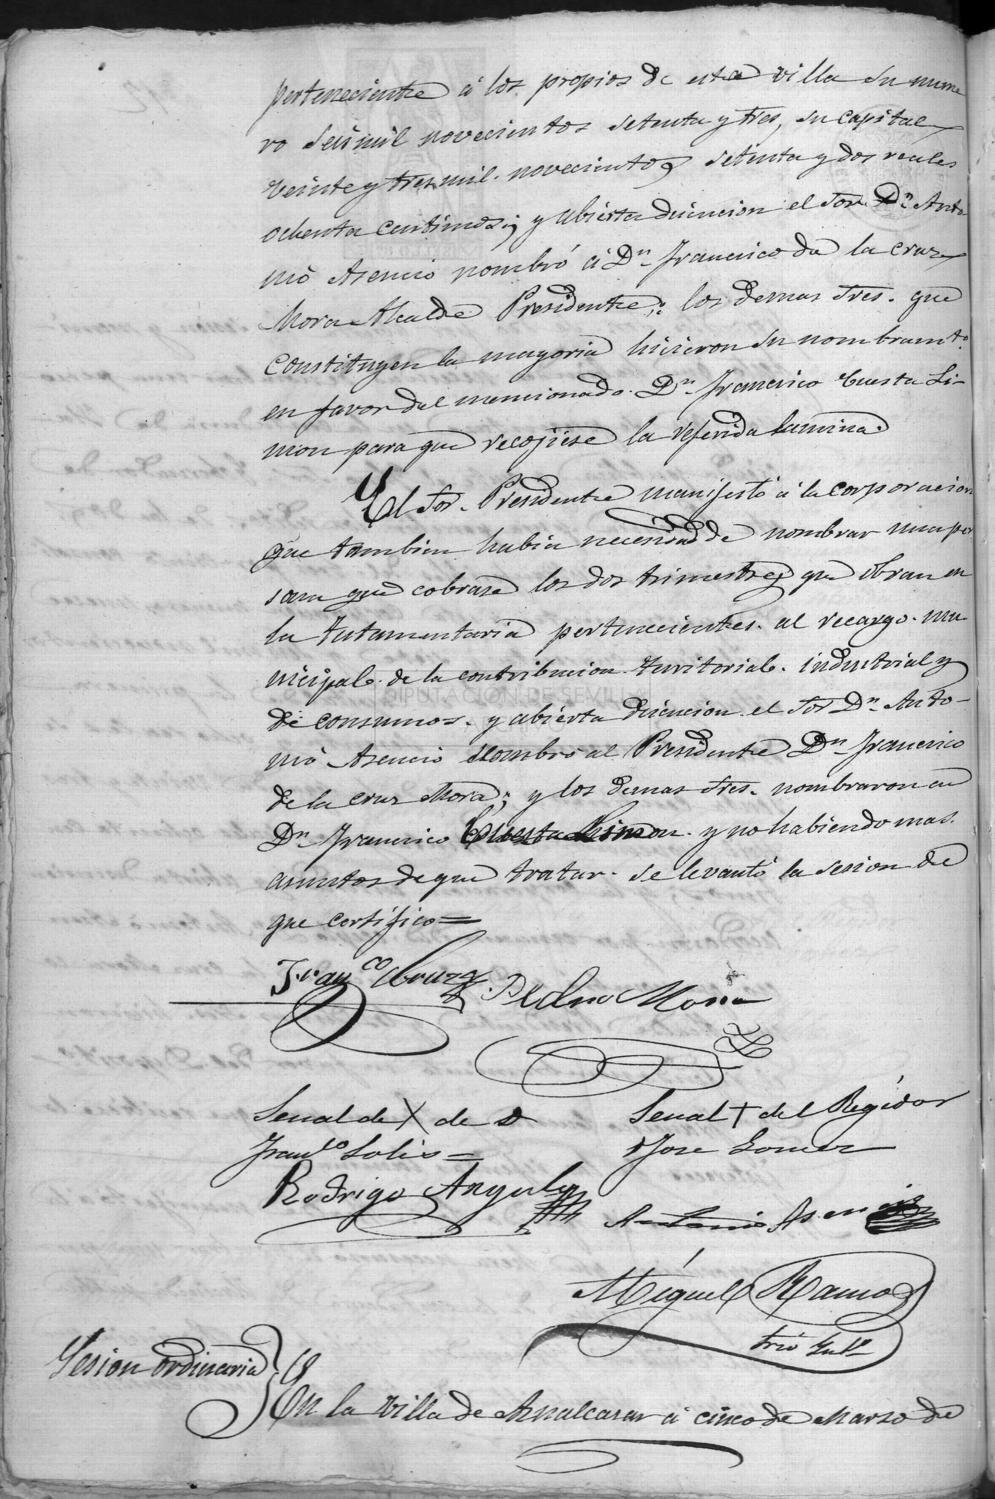 perteneciente á los propios de esta villa su nume
ro seis mil novecientos setenta y tres, su capital
veinte y tres mil novecientos setenta y dos reales
ochenta centimos; y abierta discucion el Sor. Dn. Anto
nio Asencio nombró á Dn. Francisco de la Cruz
Mora Alcalde Presidente; los demas Sres. que
constituyen la mayoria hicieron su nombramto.
en favor del mencionado Dn. Francisco Cuesta Li-
mon para que recojiese la referida lamina.
El Sor. Presidente manifestó á la corporacion
que tambien habia necesidad de nombrar una per
sona que cobrase los dos trimestres que obran en
la Testamentaria pertenecientes al recargo mu
nicipal de la contribucion territorial industrial y
de consumos y abierta discucion el Sor Dn. Anto-
nio Asencio nombro al Presidente Dn Francisco
de la Cruz Mora; y los demas Sres. nombraron a
Dn Francisco Cuesta Limon y no habiendo mas
asuntos de que tratar se levantó la sesion de
que certifico=
Franco. Cruz Pedro Mora
Senal de X de D Senal + del Regidor
Franco Solis= D Jose Gomez
Rodrigo Angulo Antonio Asencio
Miguel Ramos
Srio
Sesion ordinaria } En la Villa de Aznalcazar á cinco de Marzo de
DIPUTACION DE SEVILLA